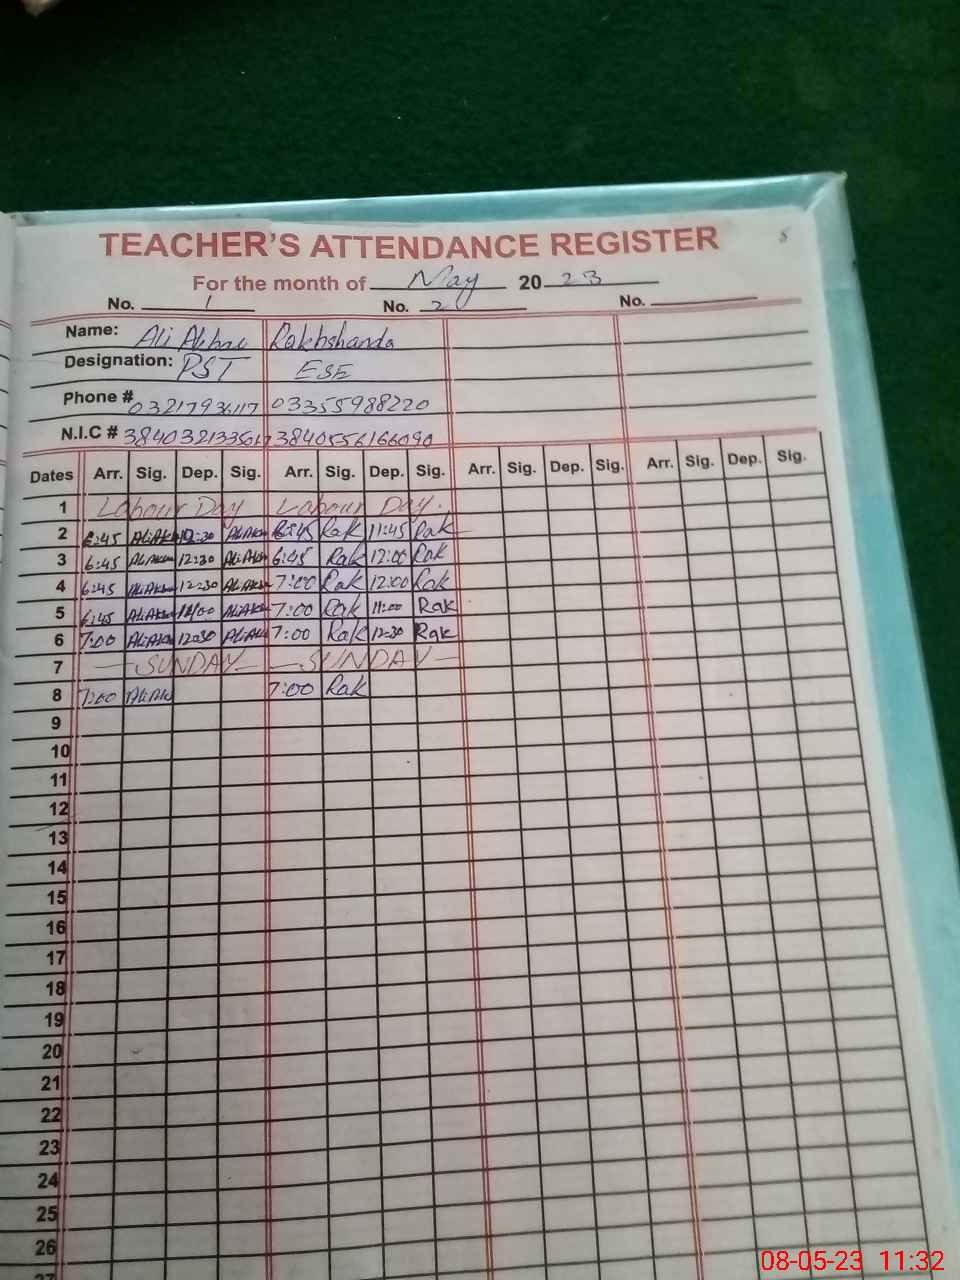 8
TEACHER'S ATTENDANCE REGISTER
For the month of May 2023
No. 1 No. 2 No.
Name: Ali Akbar Rakhshanda
Designation: PST ESE
Phone # 03355988220
N.I.C # 3840556166090
Dates Arr. Sig. Dep. Sig. Arr. Sig. Dep. Sig. Arr. Sig. Dep. Sig. Arr. Sig. Dep. Sig.
1 Labour Day Labour Day.
2 6:45 AliAkb 12:30 AliAkb 6:45 Rak 11:45 Rak
3 6:45 AliAkb 12:30 AliAkb 6:45 Rak 12:00 Rak
4 6:45 AliAkb 12:30 AliAkb 7:00 Rak 12:00 Rak
5 6:45 AliAkb AliAkb 7:00 Rak 11:00 Rak
6 7:00 AliAkb 12:30 AliAkb 7:00 Rak 12:30 Rak
7 — SUNDAY — — SUNDAY —
8 7:00 AliAk 7:00 Rak
9
10
11
12
13
14
15
16
17
18
19
20
21
22
23
24
25
26
27
08-05-23 11:32